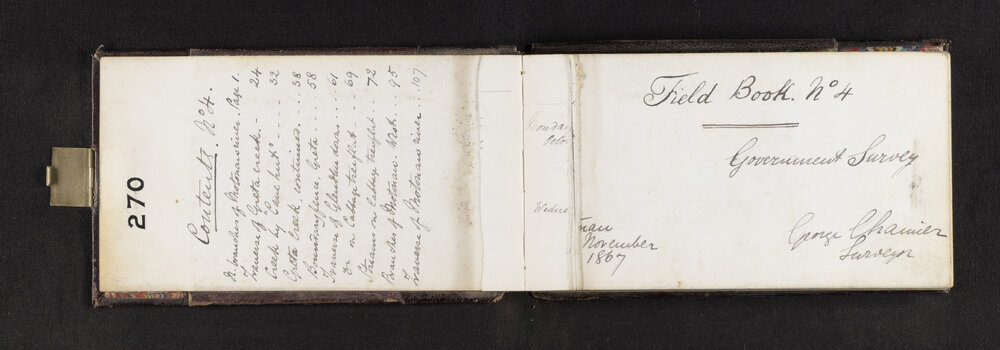 270
Contents. No 4.
N. branches of Motunau river. Page 1.
Traverse of Greta creek..- 24
Creek by "Cave hut" .... 32
Greta Creek continued.... 38
Boundary fence Greta .... 58
Traverse of ... 61
Do on Cabbage tree flat ... 69
Stream on Cabbage tree flat .. 72
Branches of Motunau. West.. 95
Traverse of Motunau river .. 107
Monday
Octo
Wedne
Field Book. No 4
Government Survey
nau
November
1867
George Chamier
Surveyor